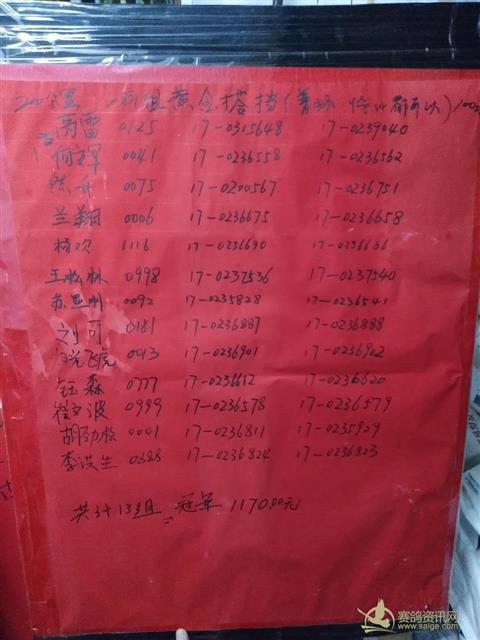 200公里 组黄金搭挡(普环 特比都可以)100元
高雷 0125 17-0315648 17-0239040
何辉 0041 17-0236558 17-0236562
0075 17-0200567 17-0236751
兰翔 0006 17-0236675 17-0236658
杨欢 1116 17-0236690 17-0236686
王松林 0998 17-0237536 17-0237540
苏昆 0092 17-0235828 17-0236541
刘可 0181 17-0236887 17-0236888
飞虎 0013 17-0236901 17-0236902
钰森 0777 17-0236612 17-0236620
崔文波 0999 17-0236578 17-0236579
胡劲松 0001 17-0236811 17-0235929
李洪生 0388 17-0236824 17-0236823
共计13组 冠军 1170.00元
赛鸽资讯网
www.saige.com